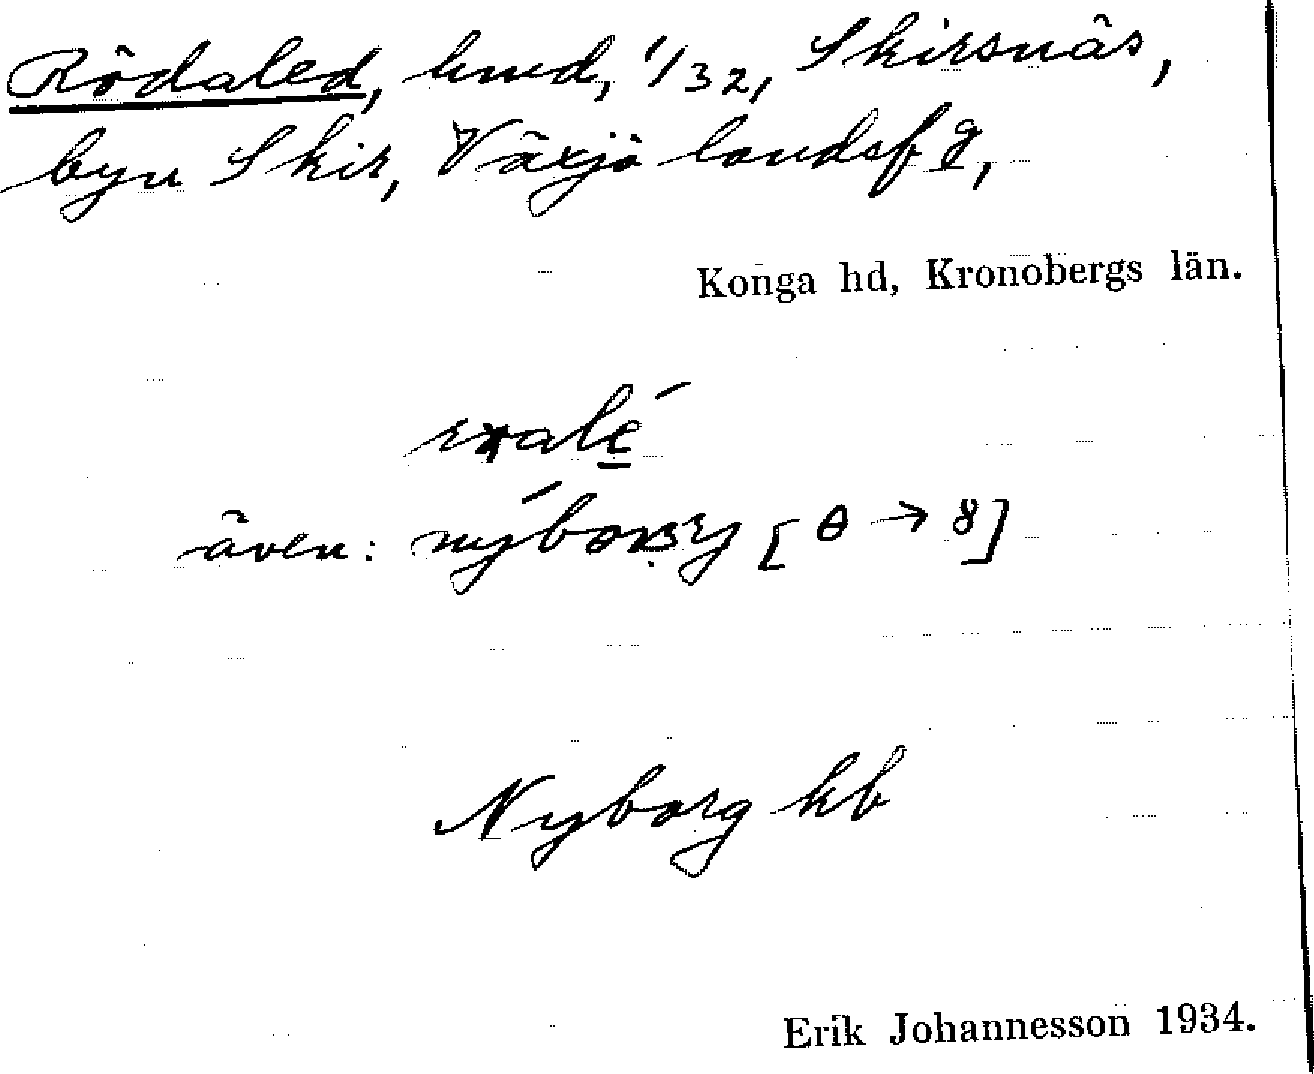 Rödaled, hmd, 1/32, Skirsnäs,
byn Skir, Växjö landsfg,
Konga hd, Kronobergs län.
även: [ɵ → 8]
Nyborg kb
Erik Johannesson 1934.